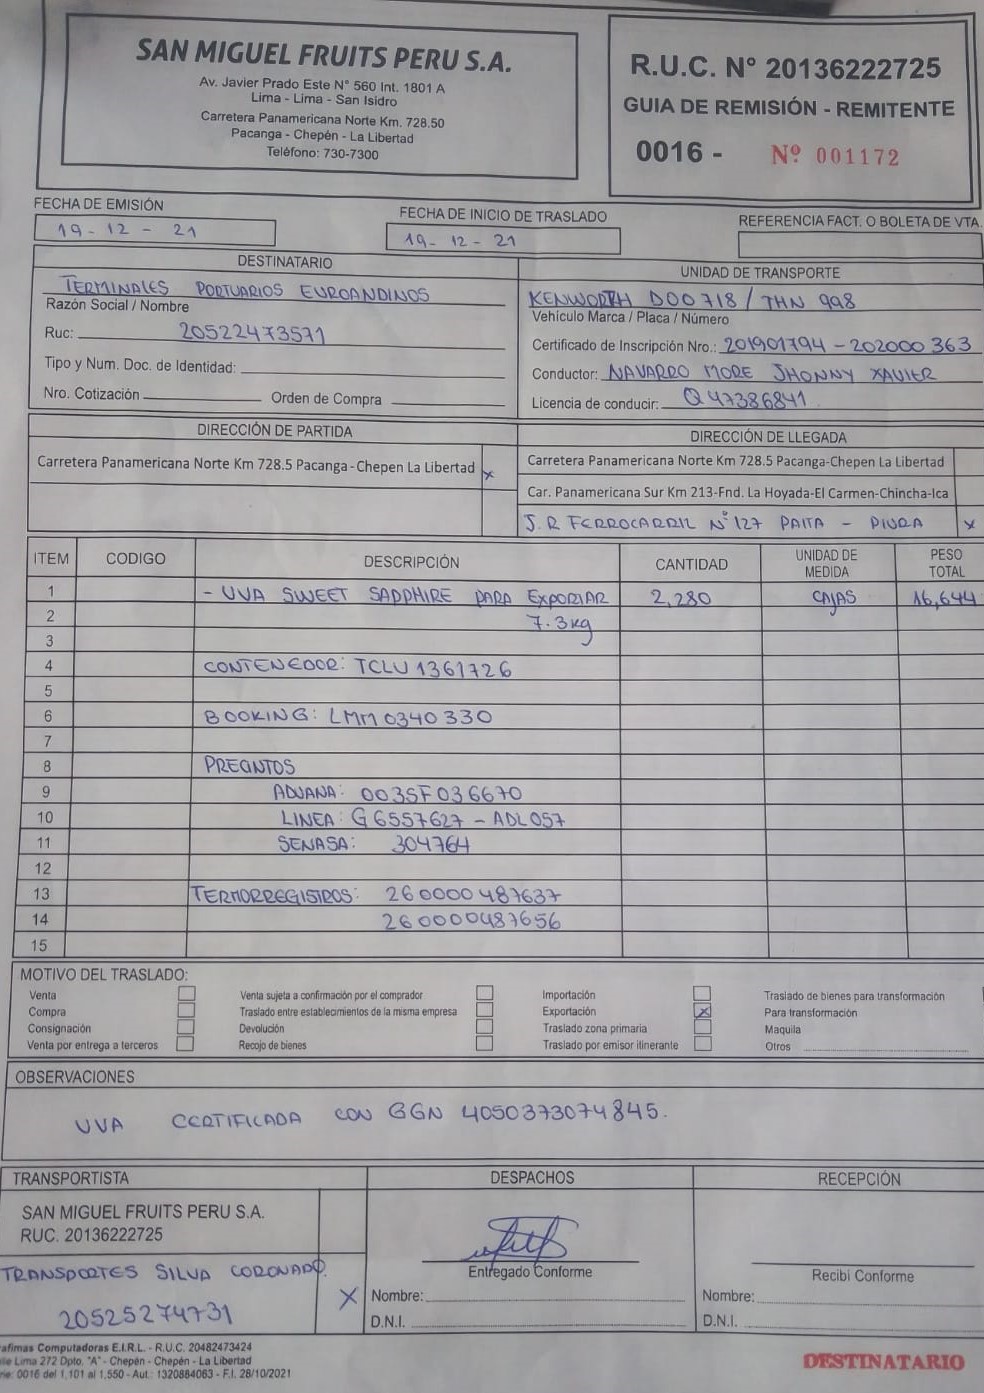 SAN MIGUEL FRUITS PERU S.A.
Av. Javier Prado Este N° 560 Int. 1801 A
Lima - Lima - San Isidro
Carretera Panamericana Norte Km. 728.50
Pacanga - Chepén - La Libertad
Teléfono: 730-7300
R.U.C. N° 20136222725
GUIA DE REMISIÓN - REMITENTE
0016 - Nº 001172
FECHA DE EMISIÓN
19 - 12 - 21
FECHA DE INICIO DE TRASLADO
19 - 12 - 21
REFERENCIA FACT. O BOLETA DE VTA.
DESTINATARIO
TERMINALES PORTUARIOS EUROANDINOS
Razón Social / Nombre
Ruc: 20522473571
Tipo y Num. Doc. de Identidad:
Nro. Cotización Orden de Compra
UNIDAD DE TRANSPORTE
KENWORTH D00718 / THN 998
Vehículo Marca / Placa / Número
Certificado de Inscripción Nro.: 201901794 - 202000363
Conductor: NAVARRO MORE JHONNY XAVIER
Licencia de conducir: Q47386841
DIRECCIÓN DE PARTIDA
Carretera Panamericana Norte Km 728.5 Pacanga - Chepen La Libertad x
DIRECCIÓN DE LLEGADA
Carretera Panamericana Norte Km 728.5 Pacanga-Chepen La Libertad
Car. Panamericana Sur Km 213-Fnd. La Hoyada-El Carmen-Chincha-Ica
J.R FERROCARRIL N° 127 PAITA - PIURA x
ITEM CODIGO DESCRIPCIÓN CANTIDAD UNIDAD DE MEDIDA PESO TOTAL
1 - UVA SWEET SAPPHIRE PARA EXPORTAR 2,280 CAJAS 16,644
2 7.3kg
3
4 CONTENEDOR: TCLU 1361726
5
6 BOOKING: LMM0340330
7
8 PRECINTOS
9 ADUANA: 003SF036670
10 LINEA: G6557627 - ADL057
11 SENASA: 304764
12
13 TERMORREGISTROS: 260000487637
14 260000487656
15
MOTIVO DEL TRASLADO:
Venta Venta sujeta a confirmación por el comprador Importación Traslado de bienes para transformación
Compra Traslado entre establecimientos de la misma empresa Exportación X Para transformación
Consignación Devolución Traslado zona primaria Maquila
Venta por entrega a terceros Recojo de bienes Traslado por emisor itinerante Otros
OBSERVACIONES
UVA CERTIFICADA CON GGN 4050373074845.
TRANSPORTISTA
SAN MIGUEL FRUITS PERU S.A.
RUC. 20136222725
TRANSPORTES SILVA CORONADO.
20525274731 X
DESPACHOS
Entregado Conforme
Nombre:
D.N.I.
RECEPCIÓN
Recibi Conforme
Nombre:
D.N.I.
afimas Computadoras E.I.R.L. - R.U.C. 20482473424
lle Lima 272 Dpto. "A" - Chepén - Chepén - La Libertad
rie: 0016 del 1,101 al 1,550 - Aut.: 1320884063 - F.I. 28/10/2021
DESTINATARIO